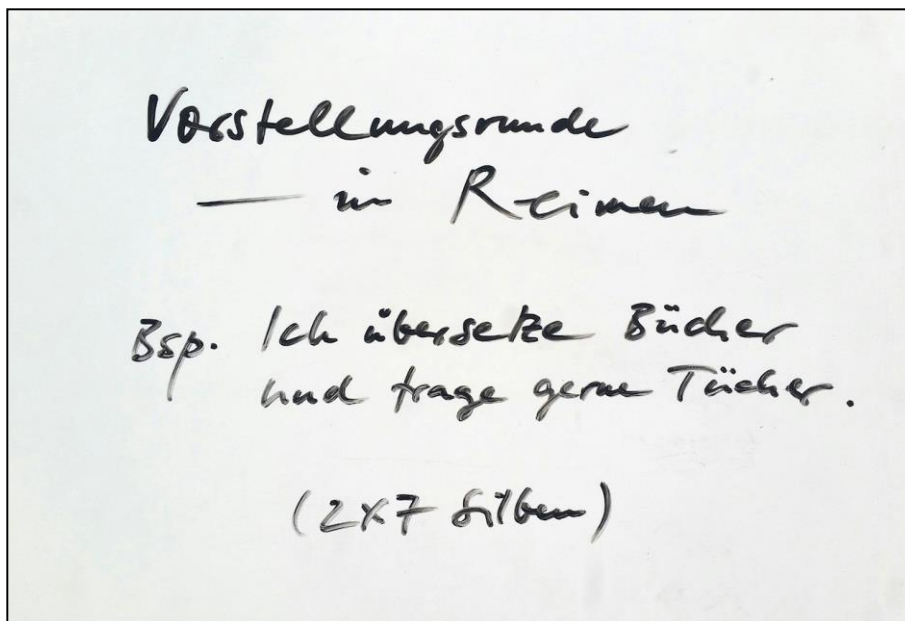 Vorstellungsrunde
— in Reimen
Bsp. Ich übersetze Bücher
und trage gerne Tücher.
(2x7 Silben)